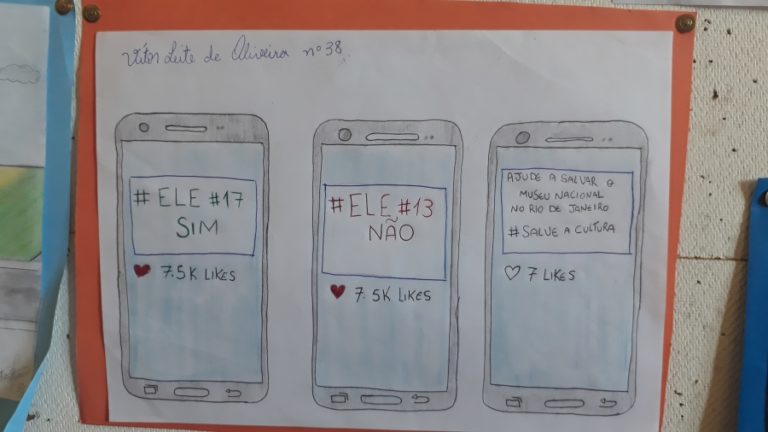 Vítor Leite de Oliveira nº 38.
# ELE #17
SIM
7.5K LIKES
#ELE #13
NÃO
7.5K LIKES
AJUDE A SALVAR O
MUSEU NACIONAL
NO RIO DE JANEIRO
#SALVE A CULTURA
7 LIKES